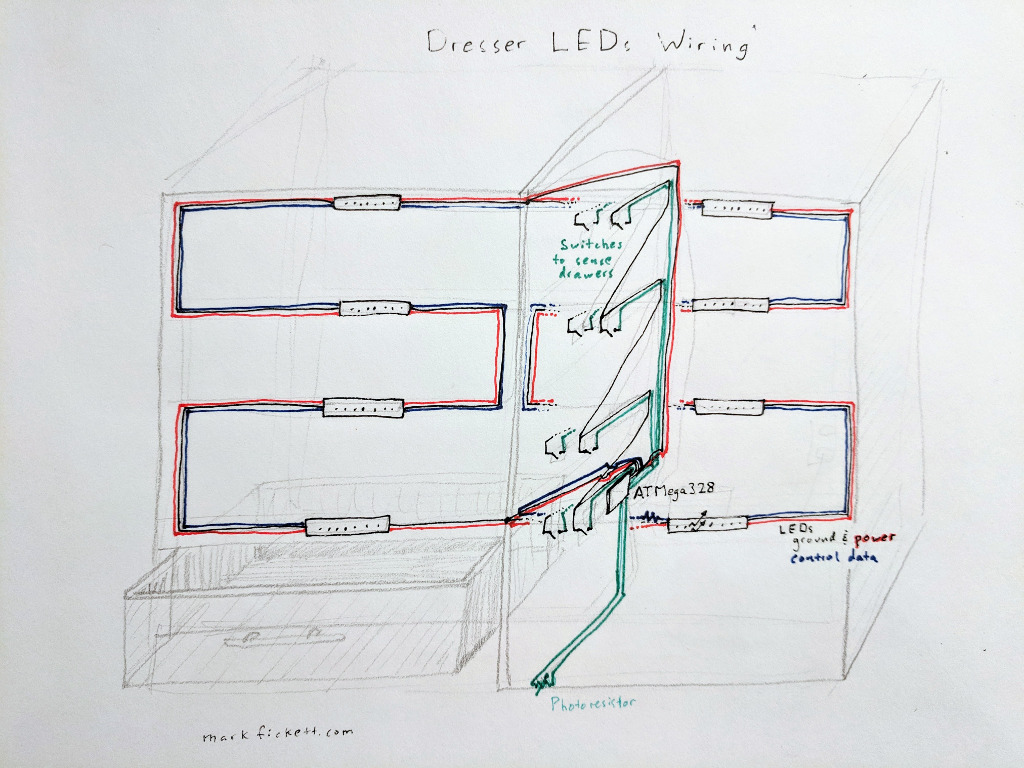 Dresser LEDs Wiring
Switches
to sense
drawers
ATMega328
LEDs
ground & power
control data
Photoresistor
markfickett.com